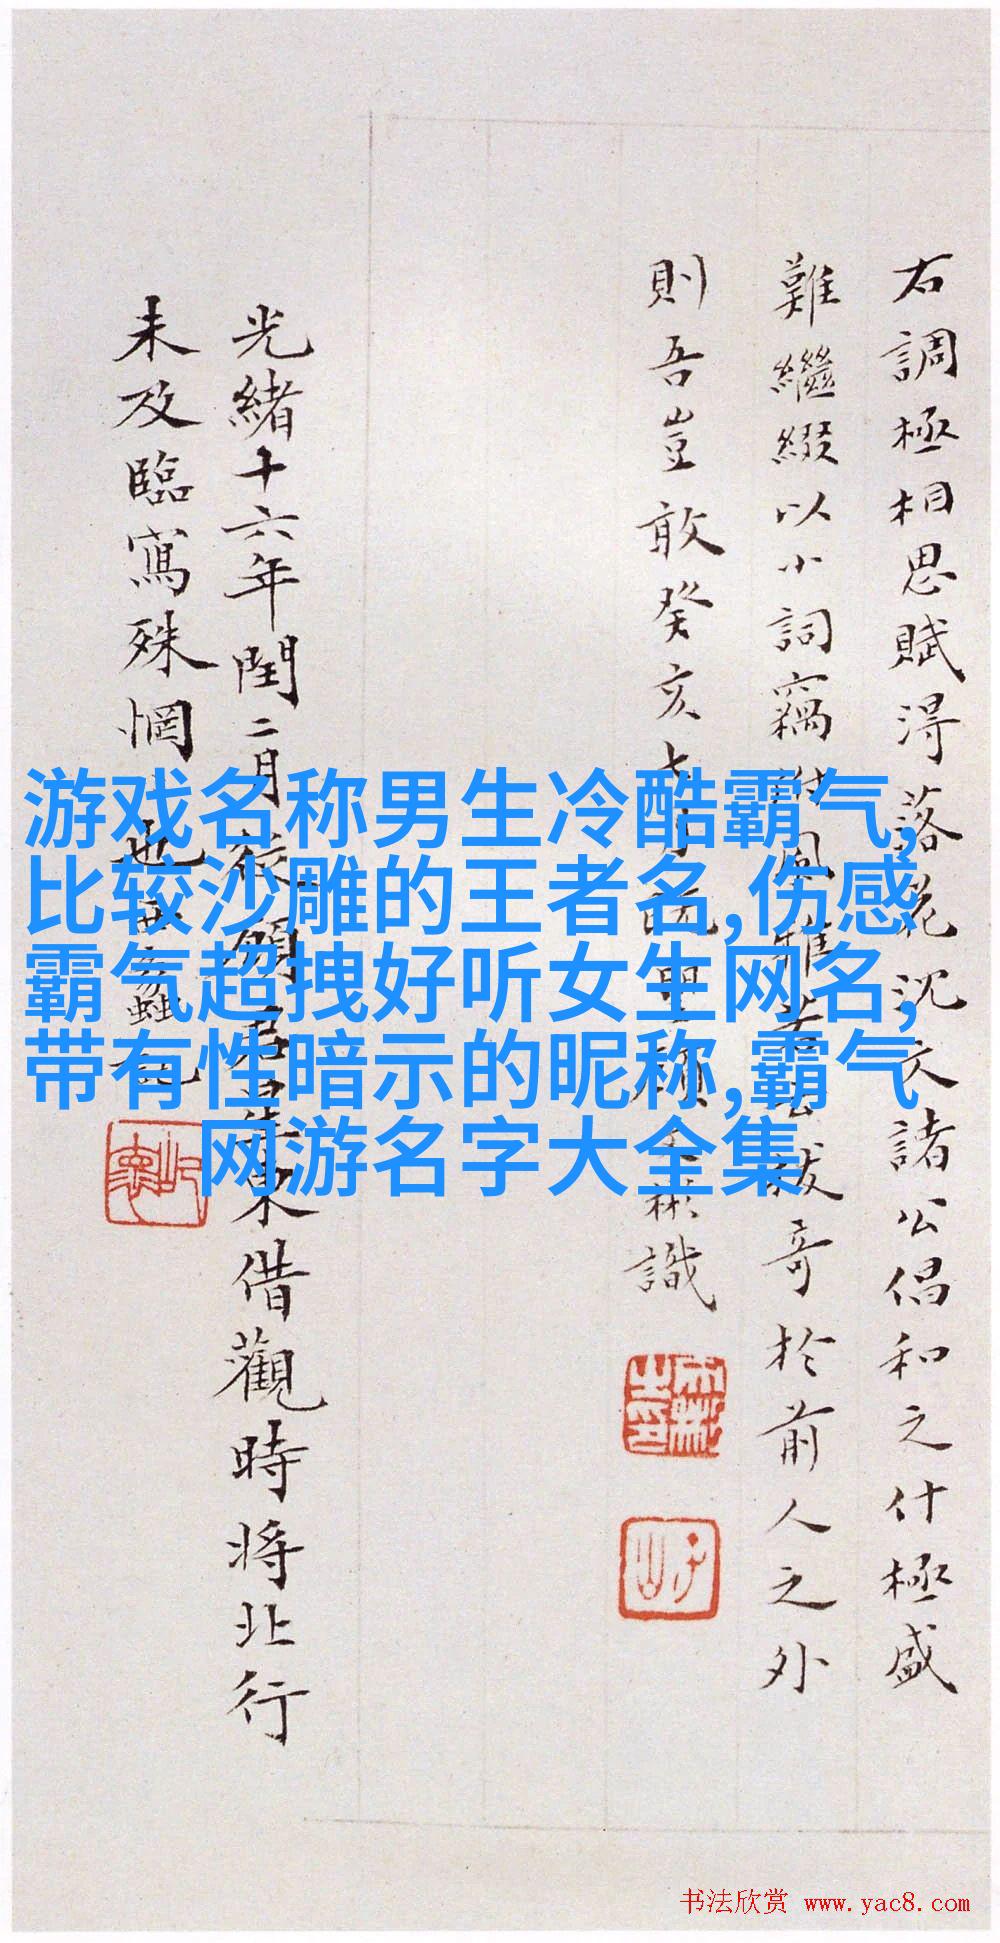 右調極相思賦得落花沉衣諸公倡和之什極盛
難繼綴以小詞竊附風雅若云拔奇於前人之外
則吾豈敢癸亥七月既望
彬識
光緒十六年閏二月從
東借觀時将北行
未及臨寫殊惘
也
游戏名称男生冷酷霸气,
比较沙雕的王者名,伤感
霸气超拽好听女生网名,
带有性暗示的昵称,霸气
网游名字大全集
书法欣赏 www.yac8.com